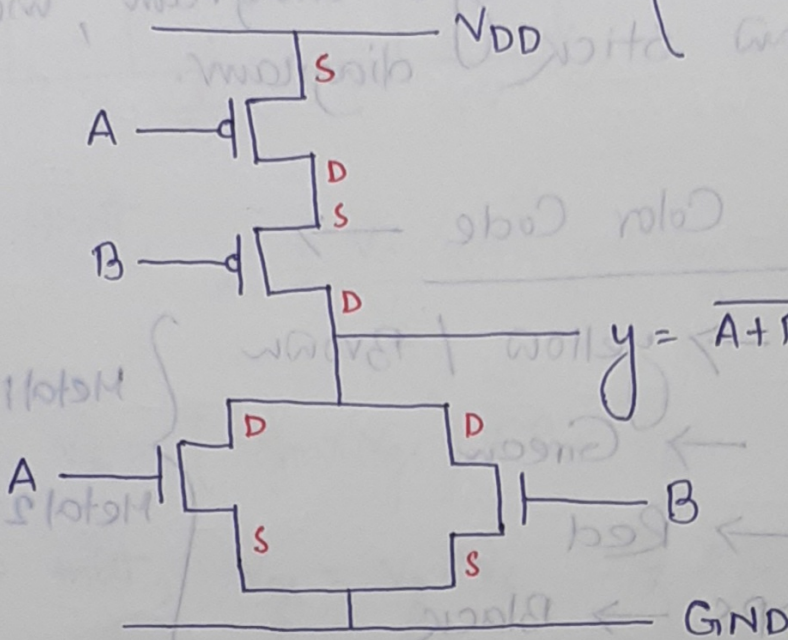 VDD
S
A
D
S
B
D
y = A+
D D
A
B
S
S
GND